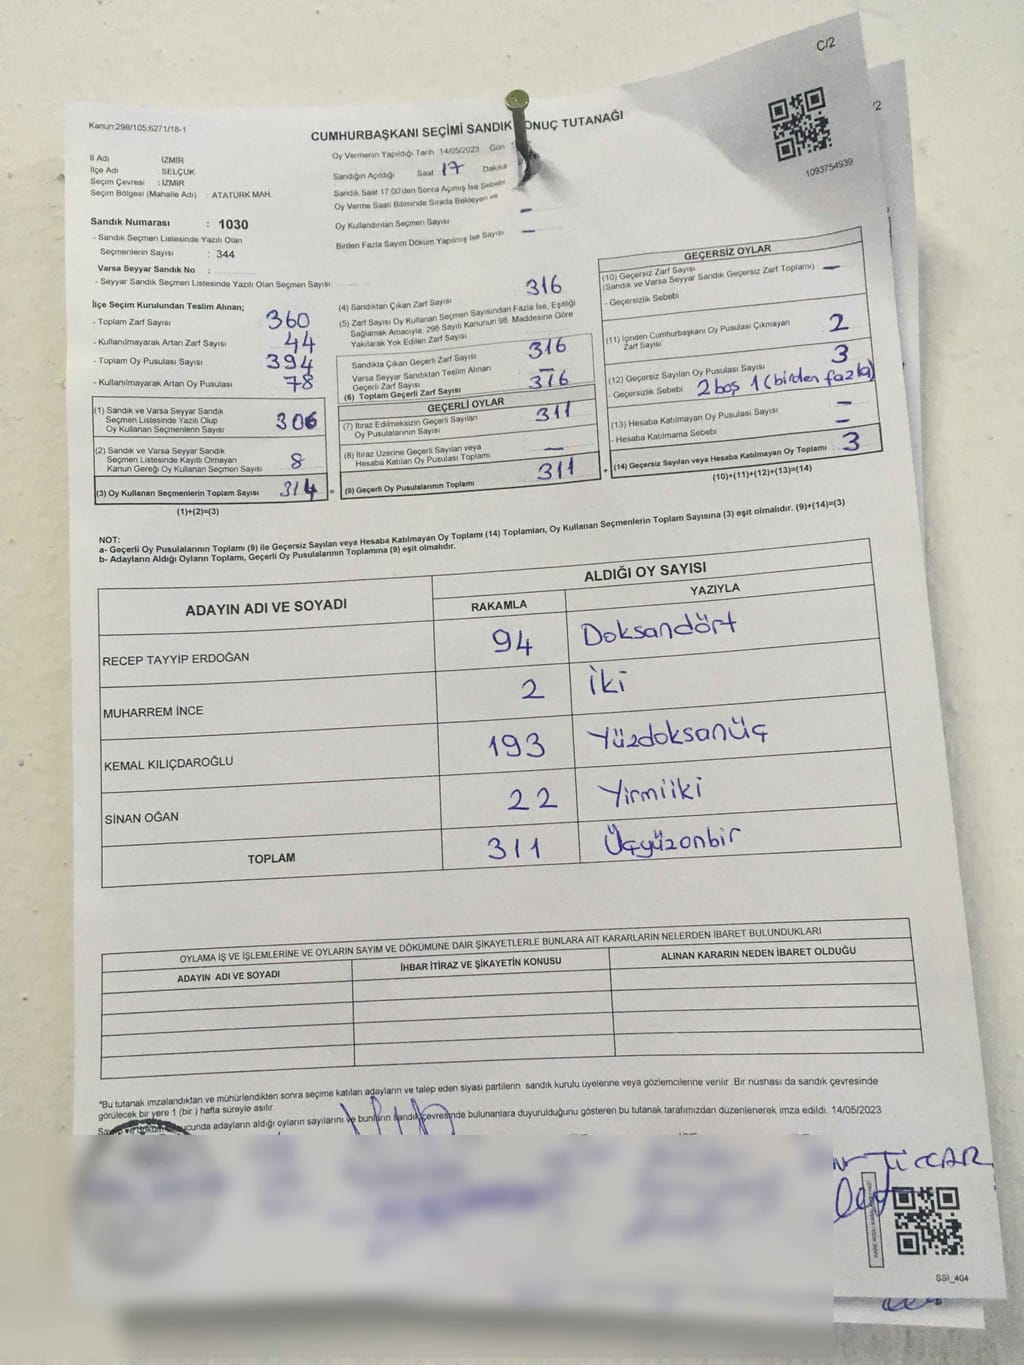 C/2
/2
Kanun:298/105,6271/18-1
CUMHURBAŞKANI SEÇİMİ SANDIK ONUÇ TUTANAĞI
1093754939
İl Adı İZMİR
İlçe Adı SELÇUK
Seçim Çevresi : İZMİR
Seçim Bölgesi (Mahalle Adı) : ATATÜRK MAH.
Oy Vermenin Yapıldığı Tarih 14/05/2023 Gün
Sandığın Açıldığı Saat 17 Dakika
Sandık Saat 17.00'den Sonra Açımış İse Sebebi
Oy Verme Saati Bitiminde Sırada Bekleyen ve
Oy Kullandırılan Seçmen Sayısı –
Birden Fazla Sayım Döküm Yapılmış İse Sayısı –
Sandık Numarası : 1030
- Sandık Seçmen Listesinde Yazılı Olan
Seçmenlerin Sayısı : 344
Varsa Seyyar Sandık No :
- Seyyar Sandık Seçmen Listesinde Yazılı Olan Seçmen Sayısı
İlçe Seçim Kurulundan Teslim Alınan;
- Toplam Zarf Sayısı 360
- Kullanılmayarak Artan Zarf Sayısı 44
- Toplam Oy Pusulası Sayısı 394
- Kullanılmayarak Artan Oy Pusulası 78
(1) Sandık ve Varsa Seyyar Sandık
Seçmen Listesinde Yazılı Olup
Oy Kullanan Seçmenlerin Sayısı 306
(2) Sandık ve Varsa Seyyar Sandık
Seçmen Listesinde Kayıtlı Olmayan
Kanun Gereği Oy Kullanan Seçmen Sayısı 8
(3) Oy Kullanan Seçmenlerin Toplam Sayısı 314 =
(1)+(2)=(3)
(4) Sandıktan Çıkan Zarf Sayısı 316
(5) Zarf Sayısı Oy Kullanan Seçmen Sayısından Fazla İse, Eşitliği
Sağlamak Amacıyla, 298 Sayılı Kanunun 98. Maddesine Göre
Yakılarak Yok Edilen Zarf Sayısı
Sandıkta Çıkan Geçerli Zarf Sayısı 316
Varsa Seyyar Sandıktan Teslim Alınan
Geçerli Zarf Sayısı –
(6) Toplam Geçerli Zarf Sayısı 316
GEÇERLİ OYLAR
(7) İtiraz Edilmeksizin Geçerli Sayılan
Oy Pusulalarının Sayısı 311
(8) İtiraz Üzerine Geçerli Sayılan veya
Hesaba Katılan Oy Pusulası Toplamı –
(9) Geçerli Oy Pusulalarının Toplamı 311 +
GEÇERSİZ OYLAR
(10) Geçersiz Zarf Sayısı
(Sandık ve Varsa Seyyar Sandık Geçersiz Zarf Toplamı) –
- Geçersizlik Sebebi
(11) İçinden Cumhurbaşkanı Oy Pusulası Çıkmayan
Zarf Sayısı 2
(12) Geçersiz Sayılan Oy Pusulası Sayısı 3
- Geçersizlik Sebebi 2 boş 1 (birden fazla)
(13) Hesaba Katılmayan Oy Pusulası Sayısı –
- Hesaba Katılmama Sebebi –
(14) Geçersiz Sayılan veya Hesaba Katılmayan Oy Toplamı 3
(10)+(11)+(12)+(13)=(14)
NOT:
a- Geçerli Oy Pusulalarının Toplamı (9) ile Geçersiz Sayılan veya Hesaba Katılmayan Oy Toplamı (14) Toplamları, Oy Kullanan Seçmenlerin Toplam Sayısına (3) eşit olmalıdır. (9)+(14)=(3)
b- Adayların Aldığı Oyların Toplamı, Geçerli Oy Pusulalarının Toplamına (9) eşit olmalıdır.
ADAYIN ADI VE SOYADI
ALDIĞI OY SAYISI
RAKAMLA YAZIYLA
RECEP TAYYİP ERDOĞAN 94 Doksandört
MUHARREM İNCE 2 İki
KEMAL KILIÇDAROĞLU 193 Yüzdoksanüç
SİNAN OĞAN 22 Yirmiiki
TOPLAM 311 Üçyüzonbir
OYLAMA İŞ VE İŞLEMLERİNE VE OYLARIN SAYIM VE DÖKÜMÜNE DAİR ŞİKAYETLERLE BUNLARA AİT KARARLARIN NELERDEN İBARET BULUNDUKLARI
ADAYIN ADI VE SOYADI İHBAR İTİRAZ VE ŞİKAYETİN KONUSU ALINAN KARARIN NEDEN İBARET OLDUĞU
*Bu tutanak imzalandıktan ve mühürlendikten sonra seçime katılan adayların ve talep eden siyasi partilerin sandık kurulu üyelerine veya gözlemcilerine verilir .Bir nüshası da sandık çevresinde
görülecek bir yere 1 (bir ) hafta süreyle asılır.
Sayım ve döküm sonucunda adayların aldığı oyların sayılarını ve bunların sandık çevresinde bulunanlara duyurulduğunu gösteren bu tutanak tarafımızdan düzenlenerek imza edildi. 14/05/2023
TİCCAR
SSI_404